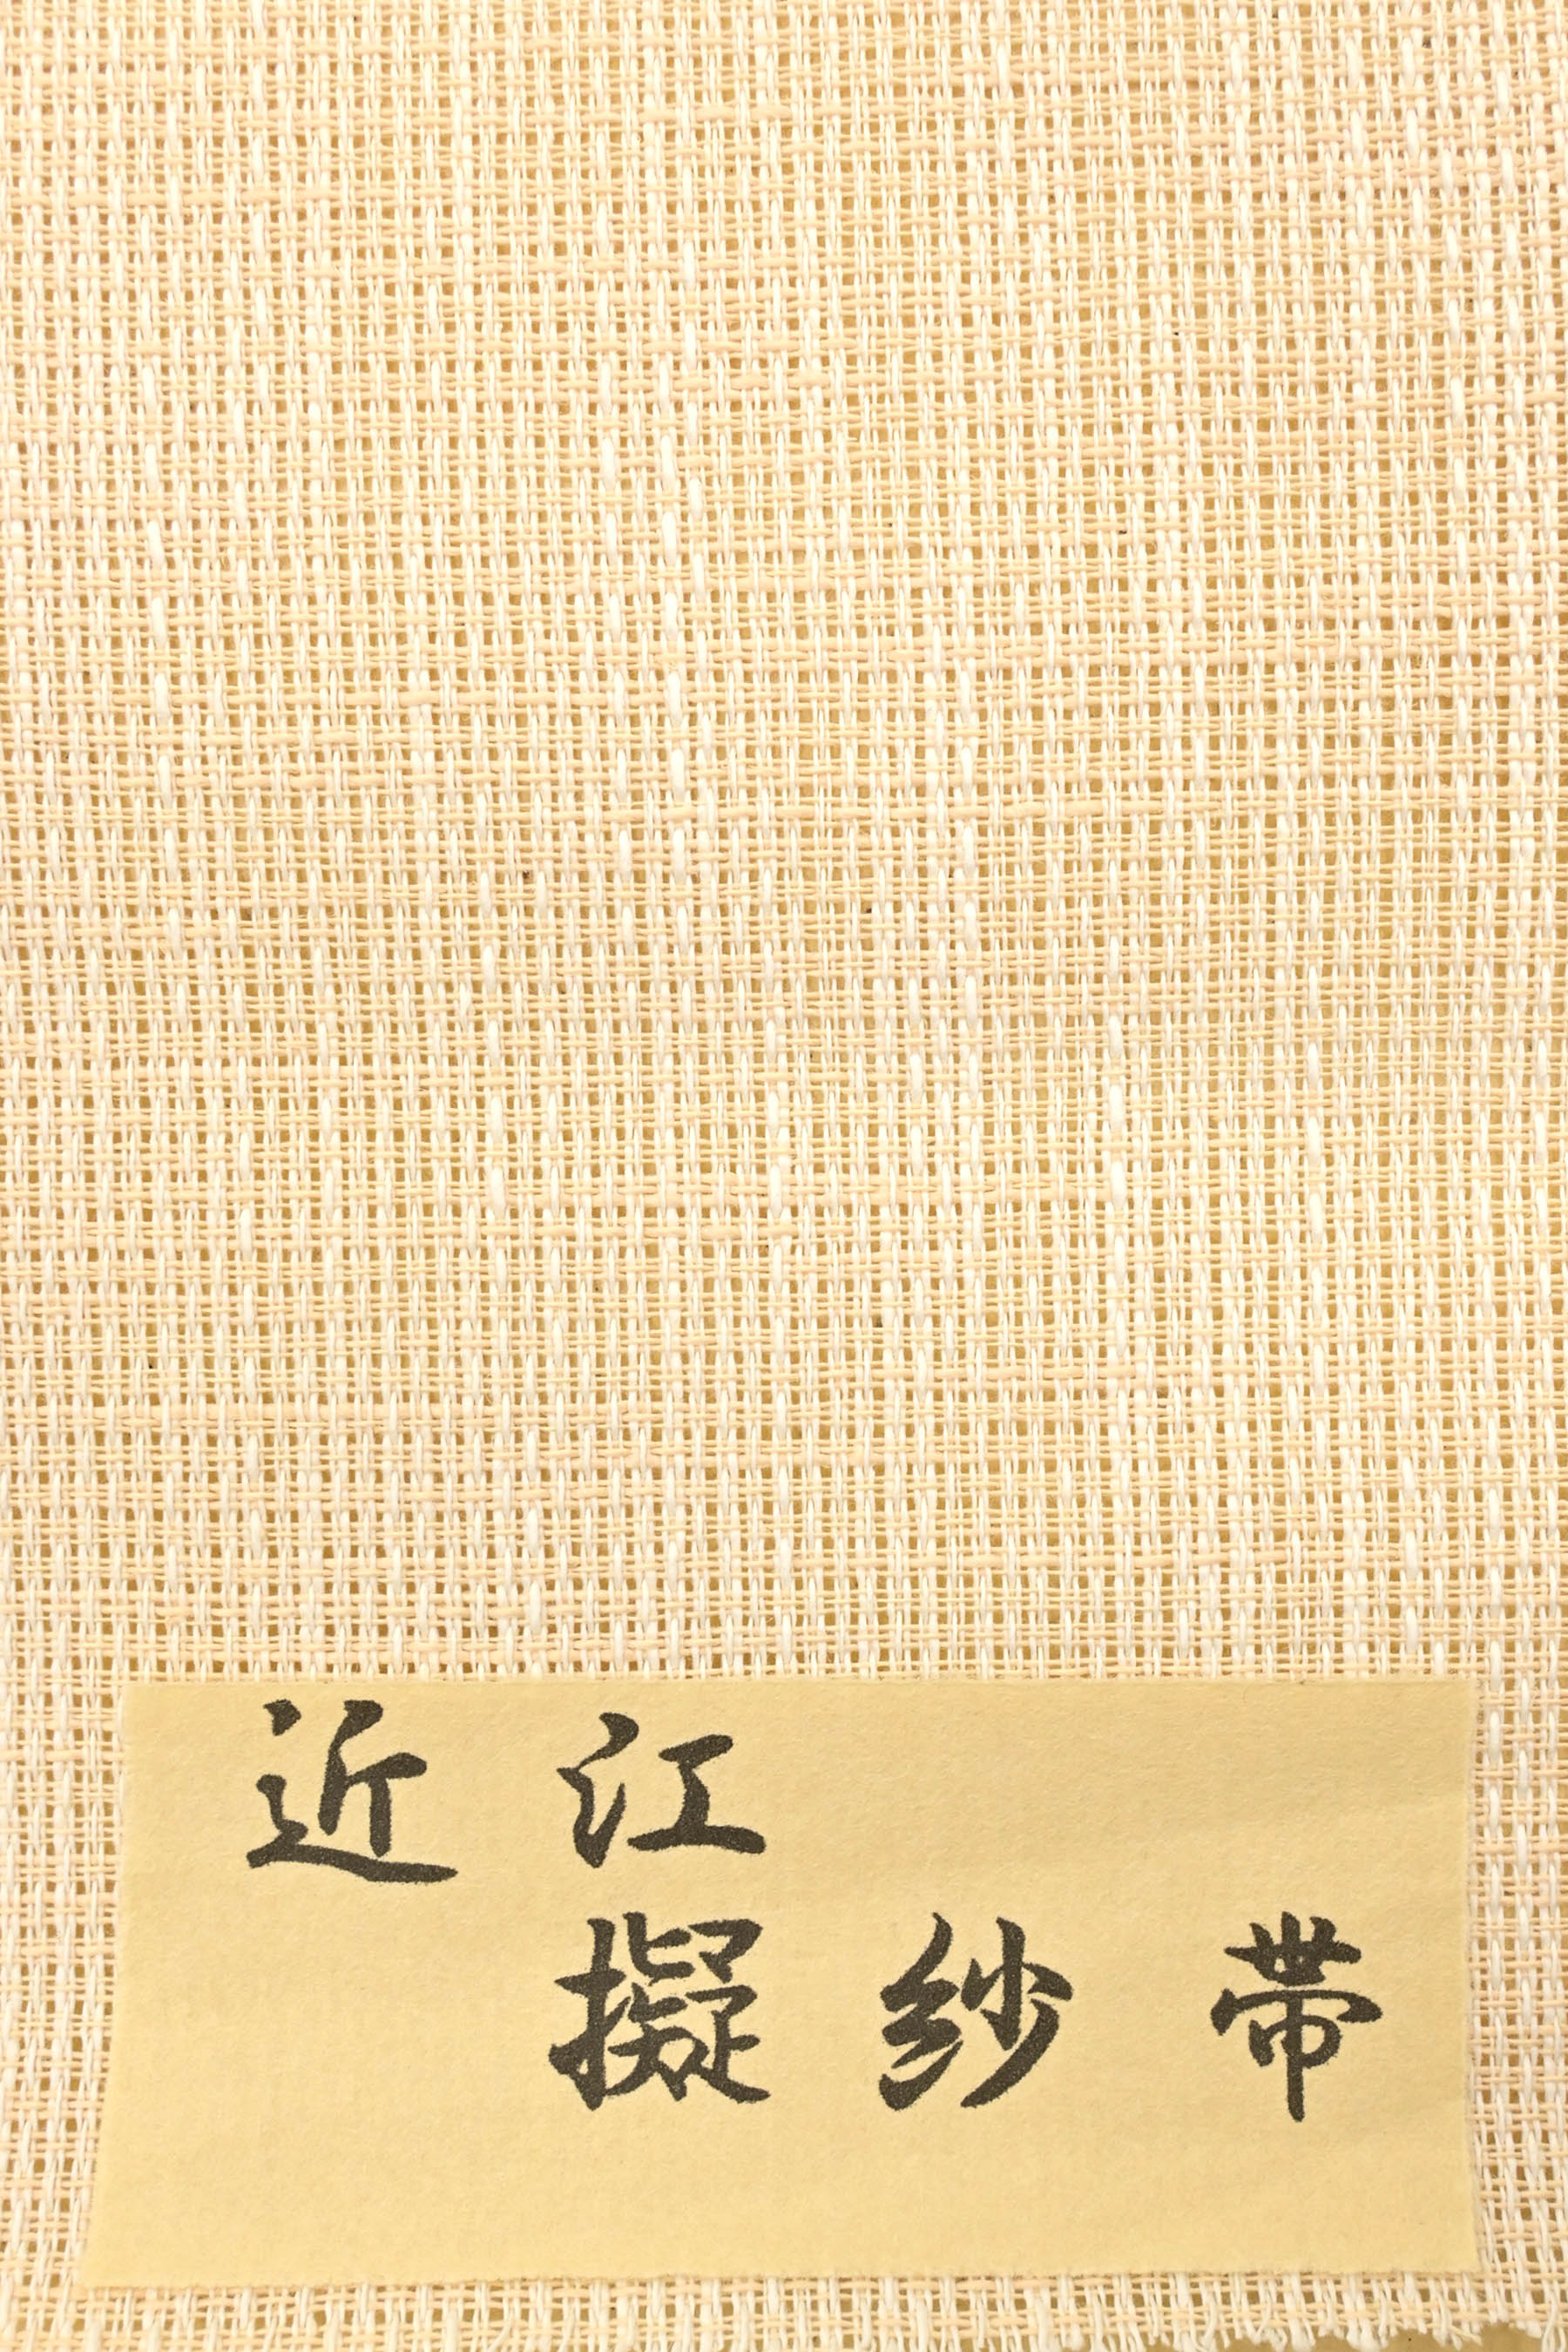 近江
擬紗帯